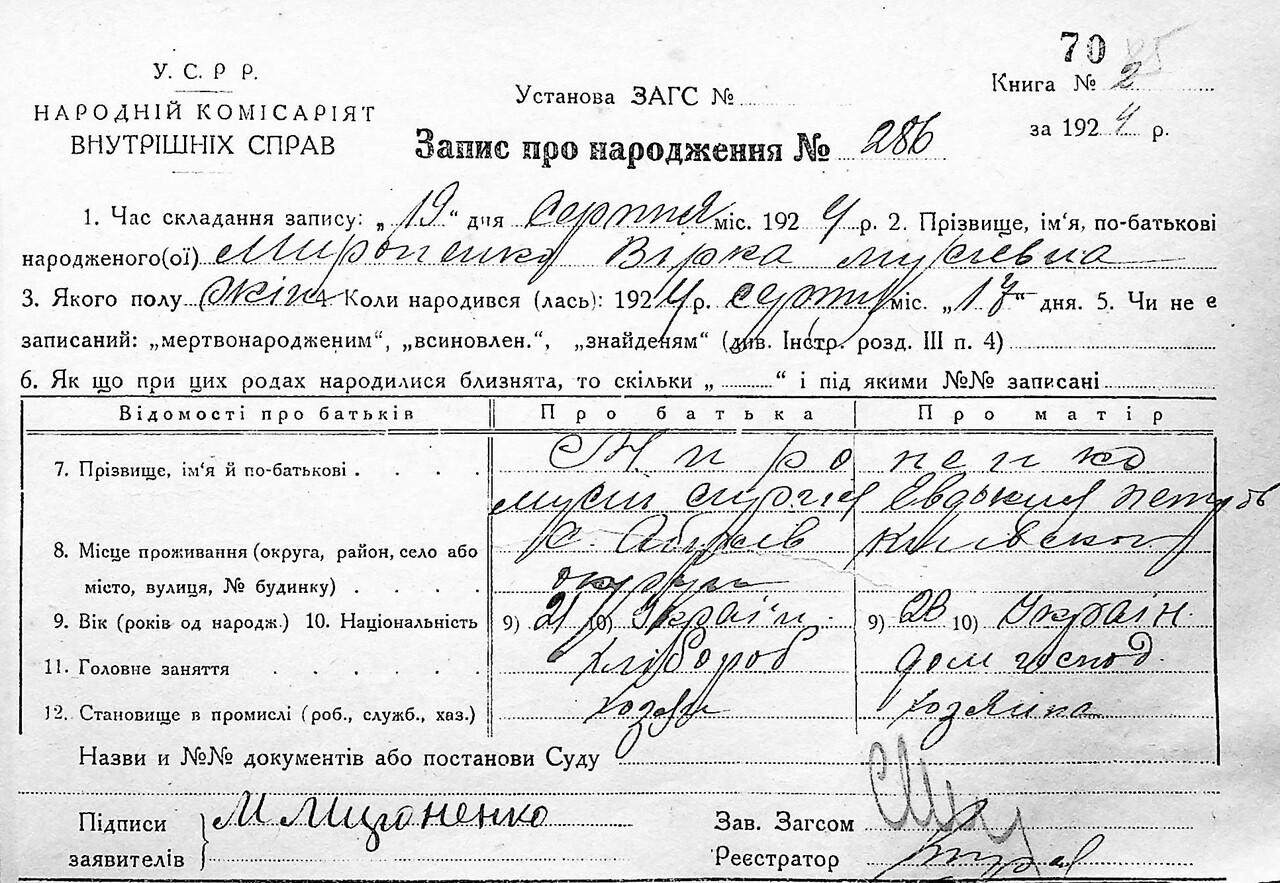 70
У. С. Р Р.
НАРОДНІЙ КОМІСАРІЯТ
ВНУТРІШНІХ СПРАВ
Установа ЗАГС №
Книга № 2
за 1924 р.
Запис про народження № 286
1. Час складання запису: „19“ дня серпня міс. 1924 р. 2. Прізвище, ім'я, по-батькові
народженого(ої) Мироненко Вірка Мусієвна
3. Якого полу жін 4. Коли народився (лась): 1924 р. серпня міс. „17“ дня. 5. Чи не є
записаний: „мертвонародженим“, „всиновлен.“, „знайденям“ (див. Інстр. розд. III п. 4)
6. Як що при цих родах народилися близнята, то скільки „ “ і під якими №№ записані
Відомості про батьків Про батька Про матір
7. Прізвище, ім'я й по-батькові Мироненко
Мусій Евдокия
8. Місце проживання (округа, район, село або с. Київского
місто, вулиця, № будинку) округи
9. Вік (років од народж.) 10. Національність 9) 21 10) Україн. 9) 23 10) Україн.
11. Головне заняття хлібороб дом господ.
12. Становище в промислі (роб., служб., хаз.) хозяин хозяйка
Назви и №№ документів або постанови Суду
Підписи М Мироненко
заявителів
Зав. Загсом
Реєстратор